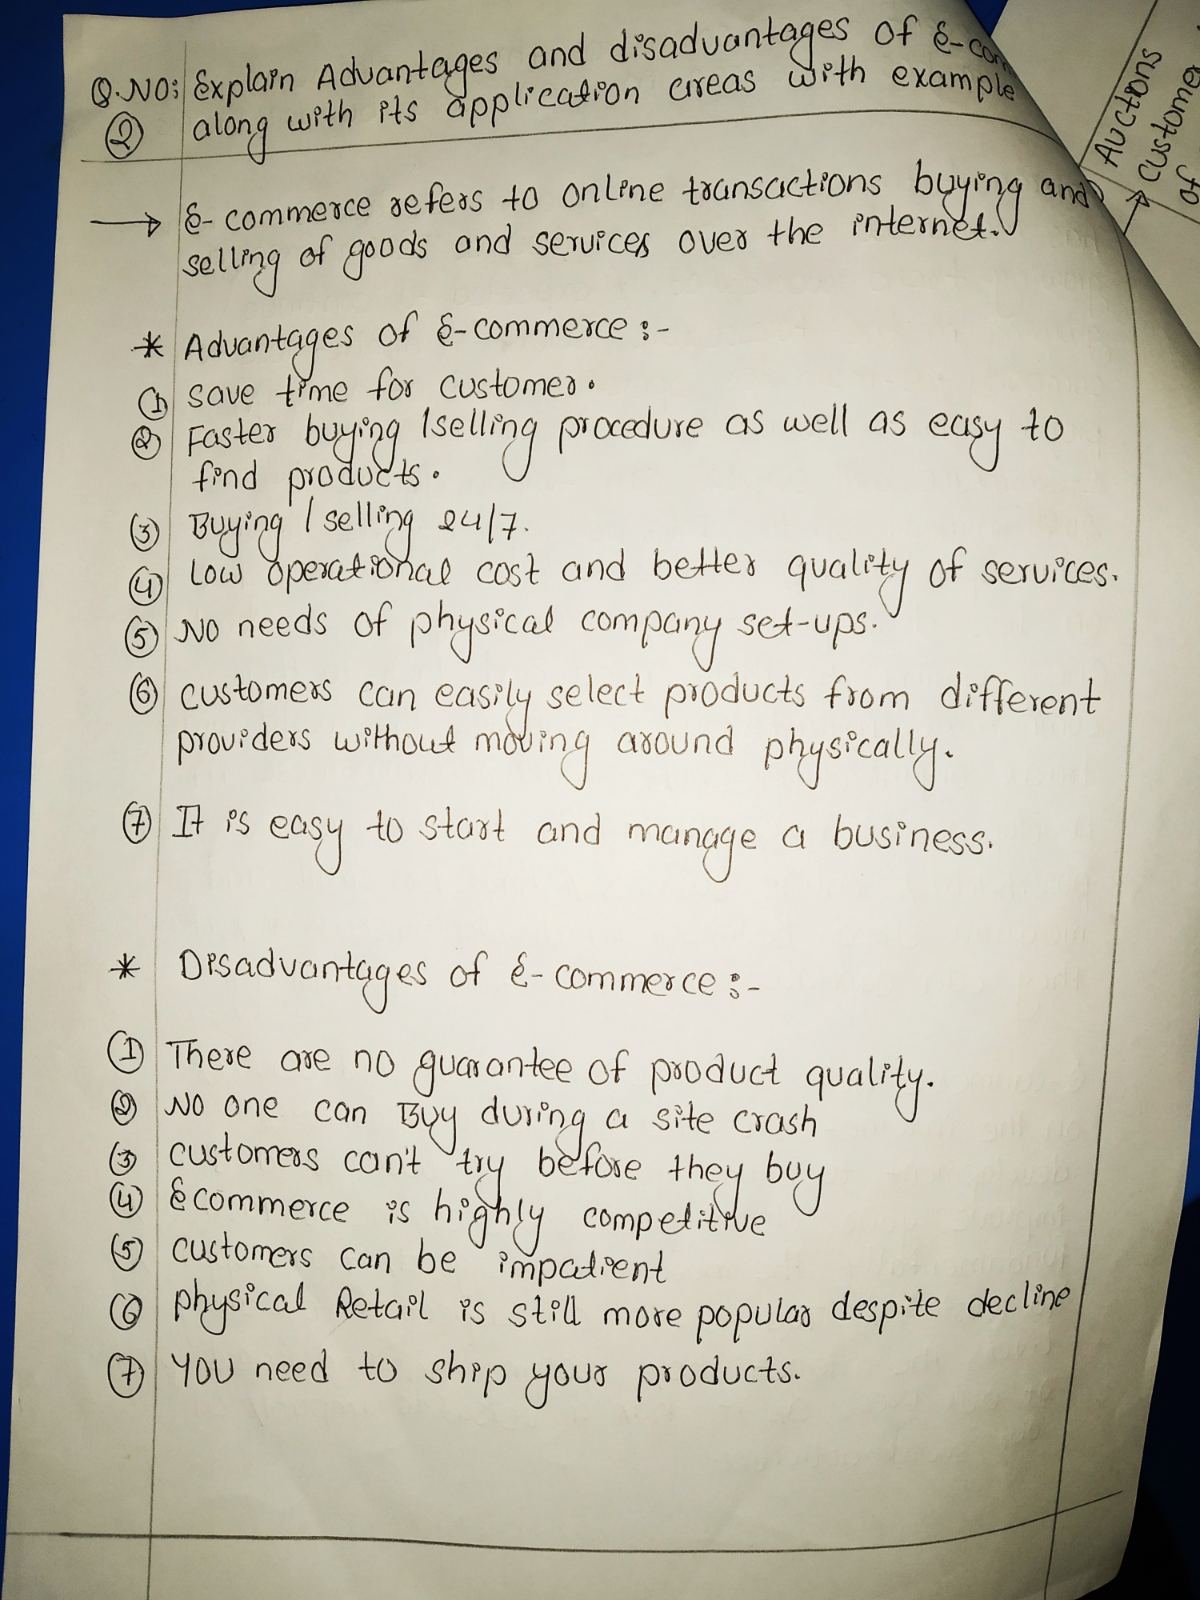 Q.NO: Explain Advantages and disadvantages of E-com
② along with its application areas with example
→ E-commerce refers to online transactions buying and
selling of goods and services over the internet.
* Advantages of E-commerce :-
① Save time for customer.
② Faster buying /selling procedure as well as easy to
find products.
③ Buying / selling 24/7.
④ Low operational cost and better quality of services.
⑤ No needs of physical company set-ups.
⑥ customers can easily select products from different
providers without moving around physically.
⑦ It is easy to start and manage a business.
* Disadvantages of E-commerce :-
① There are no guarantee of product quality.
② No one can Buy during a site crash
③ customers can't try before they buy
④ Ecommerce is highly competitive
⑤ customers can be impatient
⑥ physical Retail is still more popular despite decline
⑦ You need to ship your products.
Auctions
customer
→ of